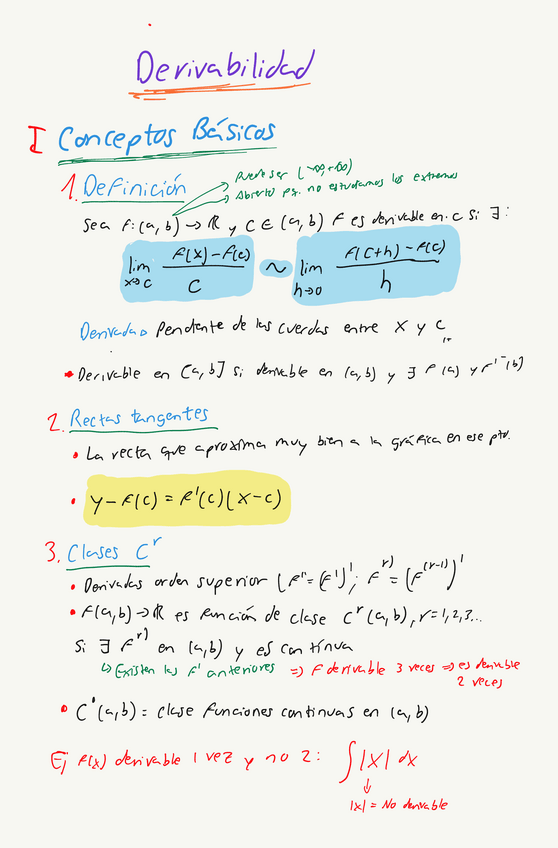 Derivabilidad
I Conceptos Básicos
1. Definición
puede ser (-∞,+∞)
Abierto pq. no estudiamos los extremos
Sea f:(a,b) → ℝ y c ∈ (a,b) f es derivable en c si ∃:
lim x→c f(x)-f(c) / c ~ lim h→0 f(c+h)-f(c) / h
Derivada → Pendiente de las cuerdas entre x y c
• Derivable en [a,b] si derivable en (a,b) y ∃ f'⁺(a) y f'⁻(b)
2. Rectas tangentes
• La recta que aproxima muy bien a la gráfica en ese pto.
• y-f(c) = f'(c)(x-c)
3. Clases Cʳ
• Derivadas orden superior (f''=(f')'; fʳ⁾=(f⁽ʳ⁻¹⁾)'
• f(a,b) → ℝ es función de clase Cʳ(a,b), r=1,2,3...
Si ∃ fʳ⁾ en (a,b) y es contínua
↳ Existen las f' anteriores ⇒ f derivable 3 veces ⇒ es derivable
2 veces
• C⁰(a,b) = clase funciones continuas en (a,b)
Ej f(x) derivable 1 vez y no 2: ∫|x| dx
↓
|x| = No derivable